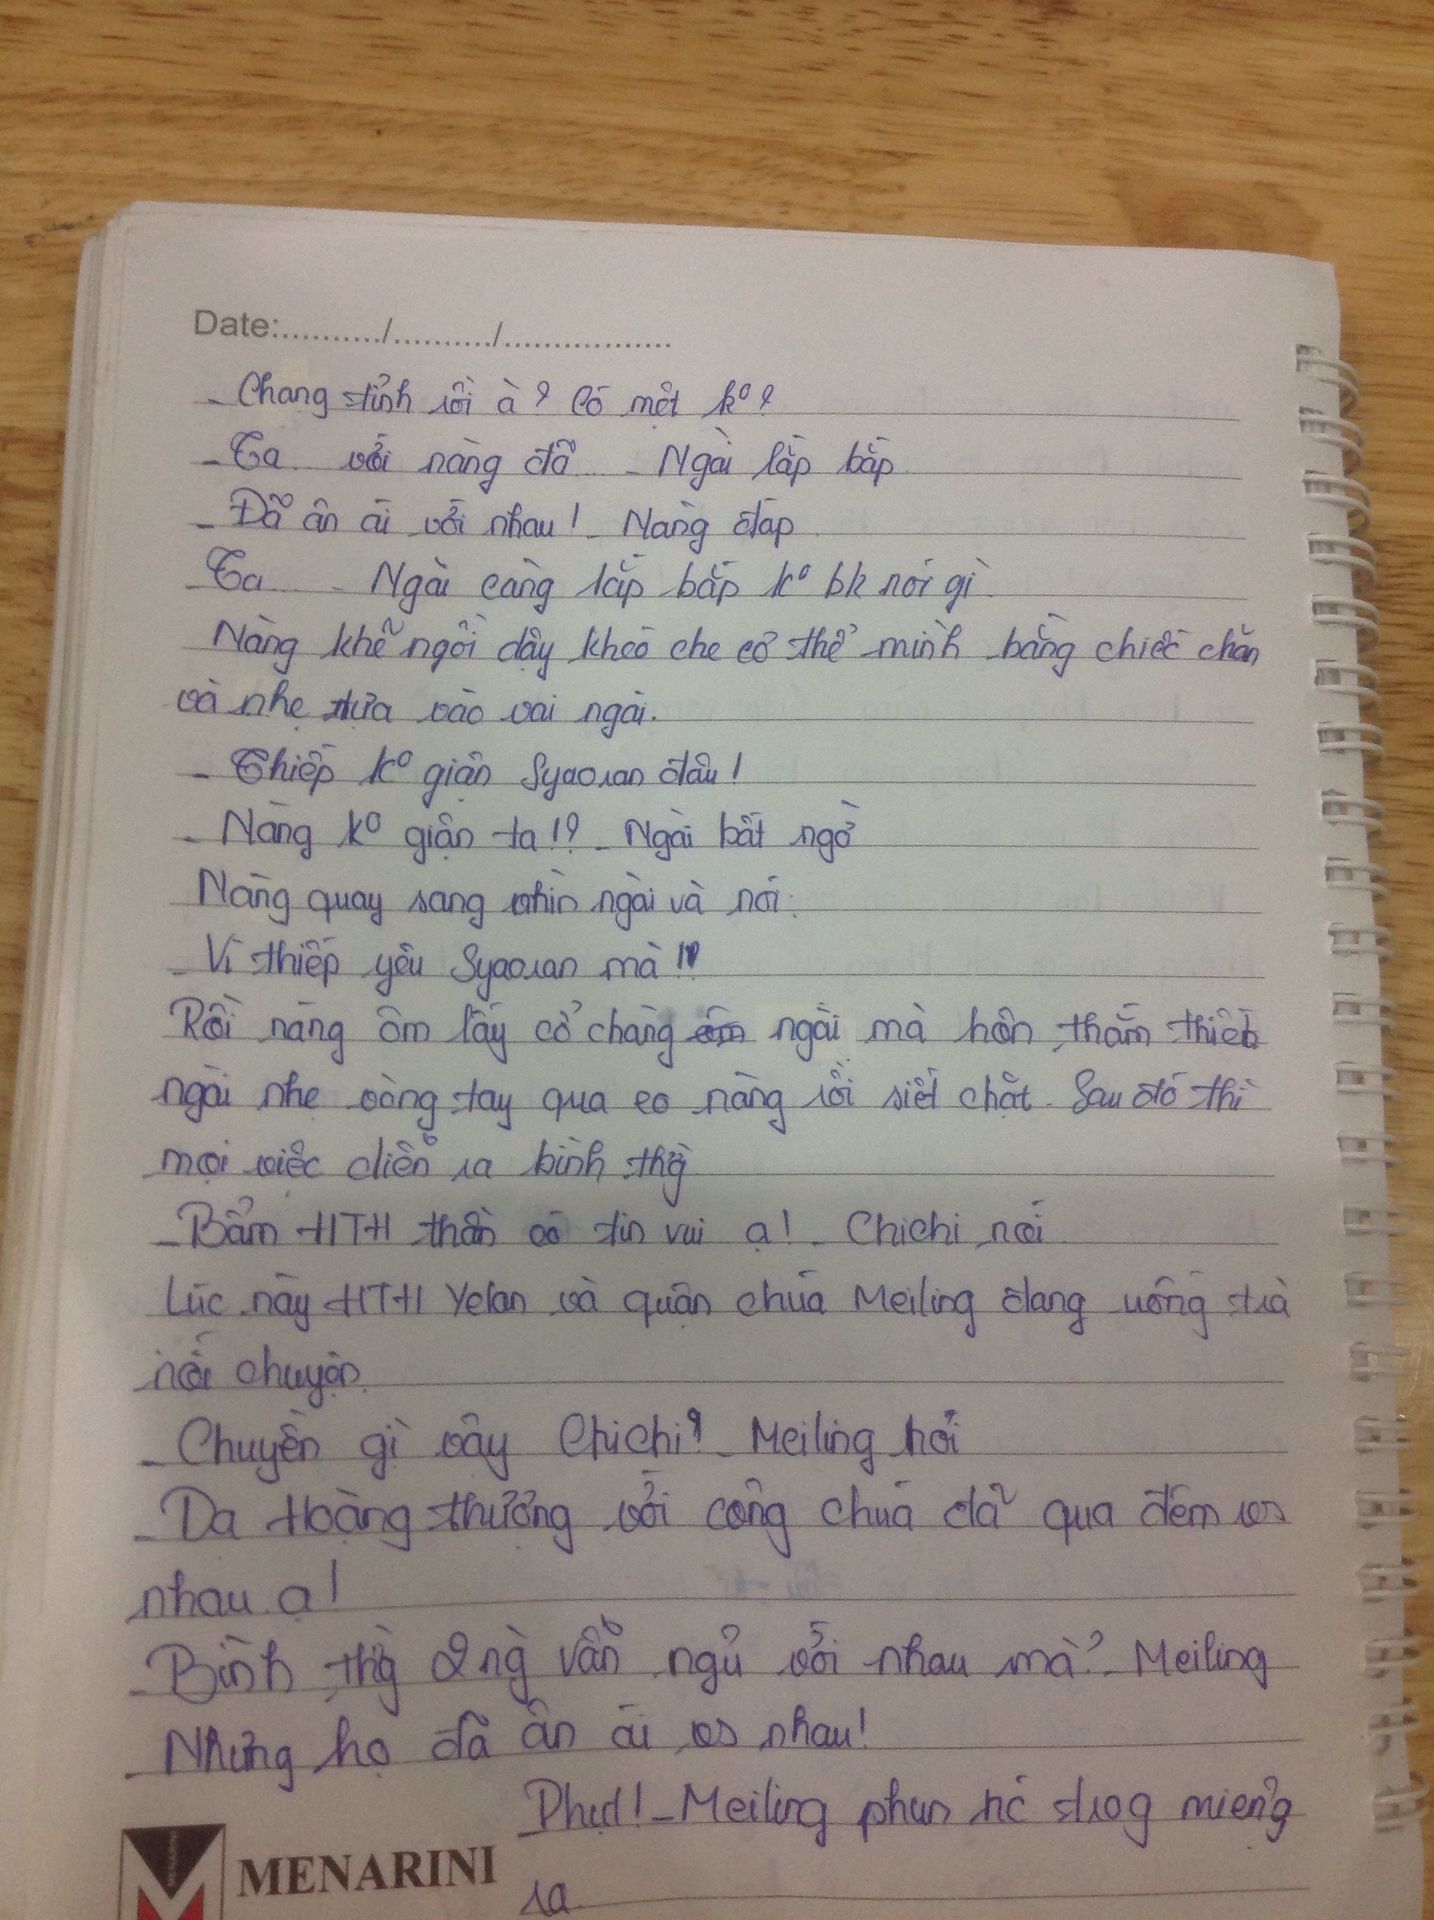 Date:........../........../.................
- Chàng tỉnh rồi à? Có mệt ko?
- Ta... với nàng đã... - Ngài lắp bắp
- Đã ân ái với nhau! - Nàng đáp
- Ta... - Ngài càng lắp bắp ko bk nói gì
Nàng khẽ ngồi dậy khéo che cơ thể mình bằng chiếc chăn
và nhẹ tựa vào vai ngài.
- Thiếp ko giận Syaoran đâu!
- Nàng ko giận ta!? - Ngài bất ngờ
Nàng quay sang nhìn ngài và nói:
- Vì thiếp yêu Syaoran mà!!
Rồi nàng ôm lấy cổ chàng ngài mà hôn thắm thiết
ngài nhẹ vòng tay qua eo nàng rồi siết chặt. Sau đó thì
mọi việc diễn ra bình thg
- Bẩm HTH thần có tin vui ạ! - Chichi nói
Lúc này HTH Yelan và quận chúa Meiling đang uống trà
nói chuyện
- Chuyện gì vậy Chichi? - Meiling hỏi
- Dạ Hoàng thượng với công chúa đã qua đêm vs
nhau ạ!
- Bình thg 2 ng vẫn ngủ với nhau mà? - Meiling
- Nhưng họ đã ân ái vs nhau!
- Phụt! - Meiling phun nc trog miệng
ra
MENARINI